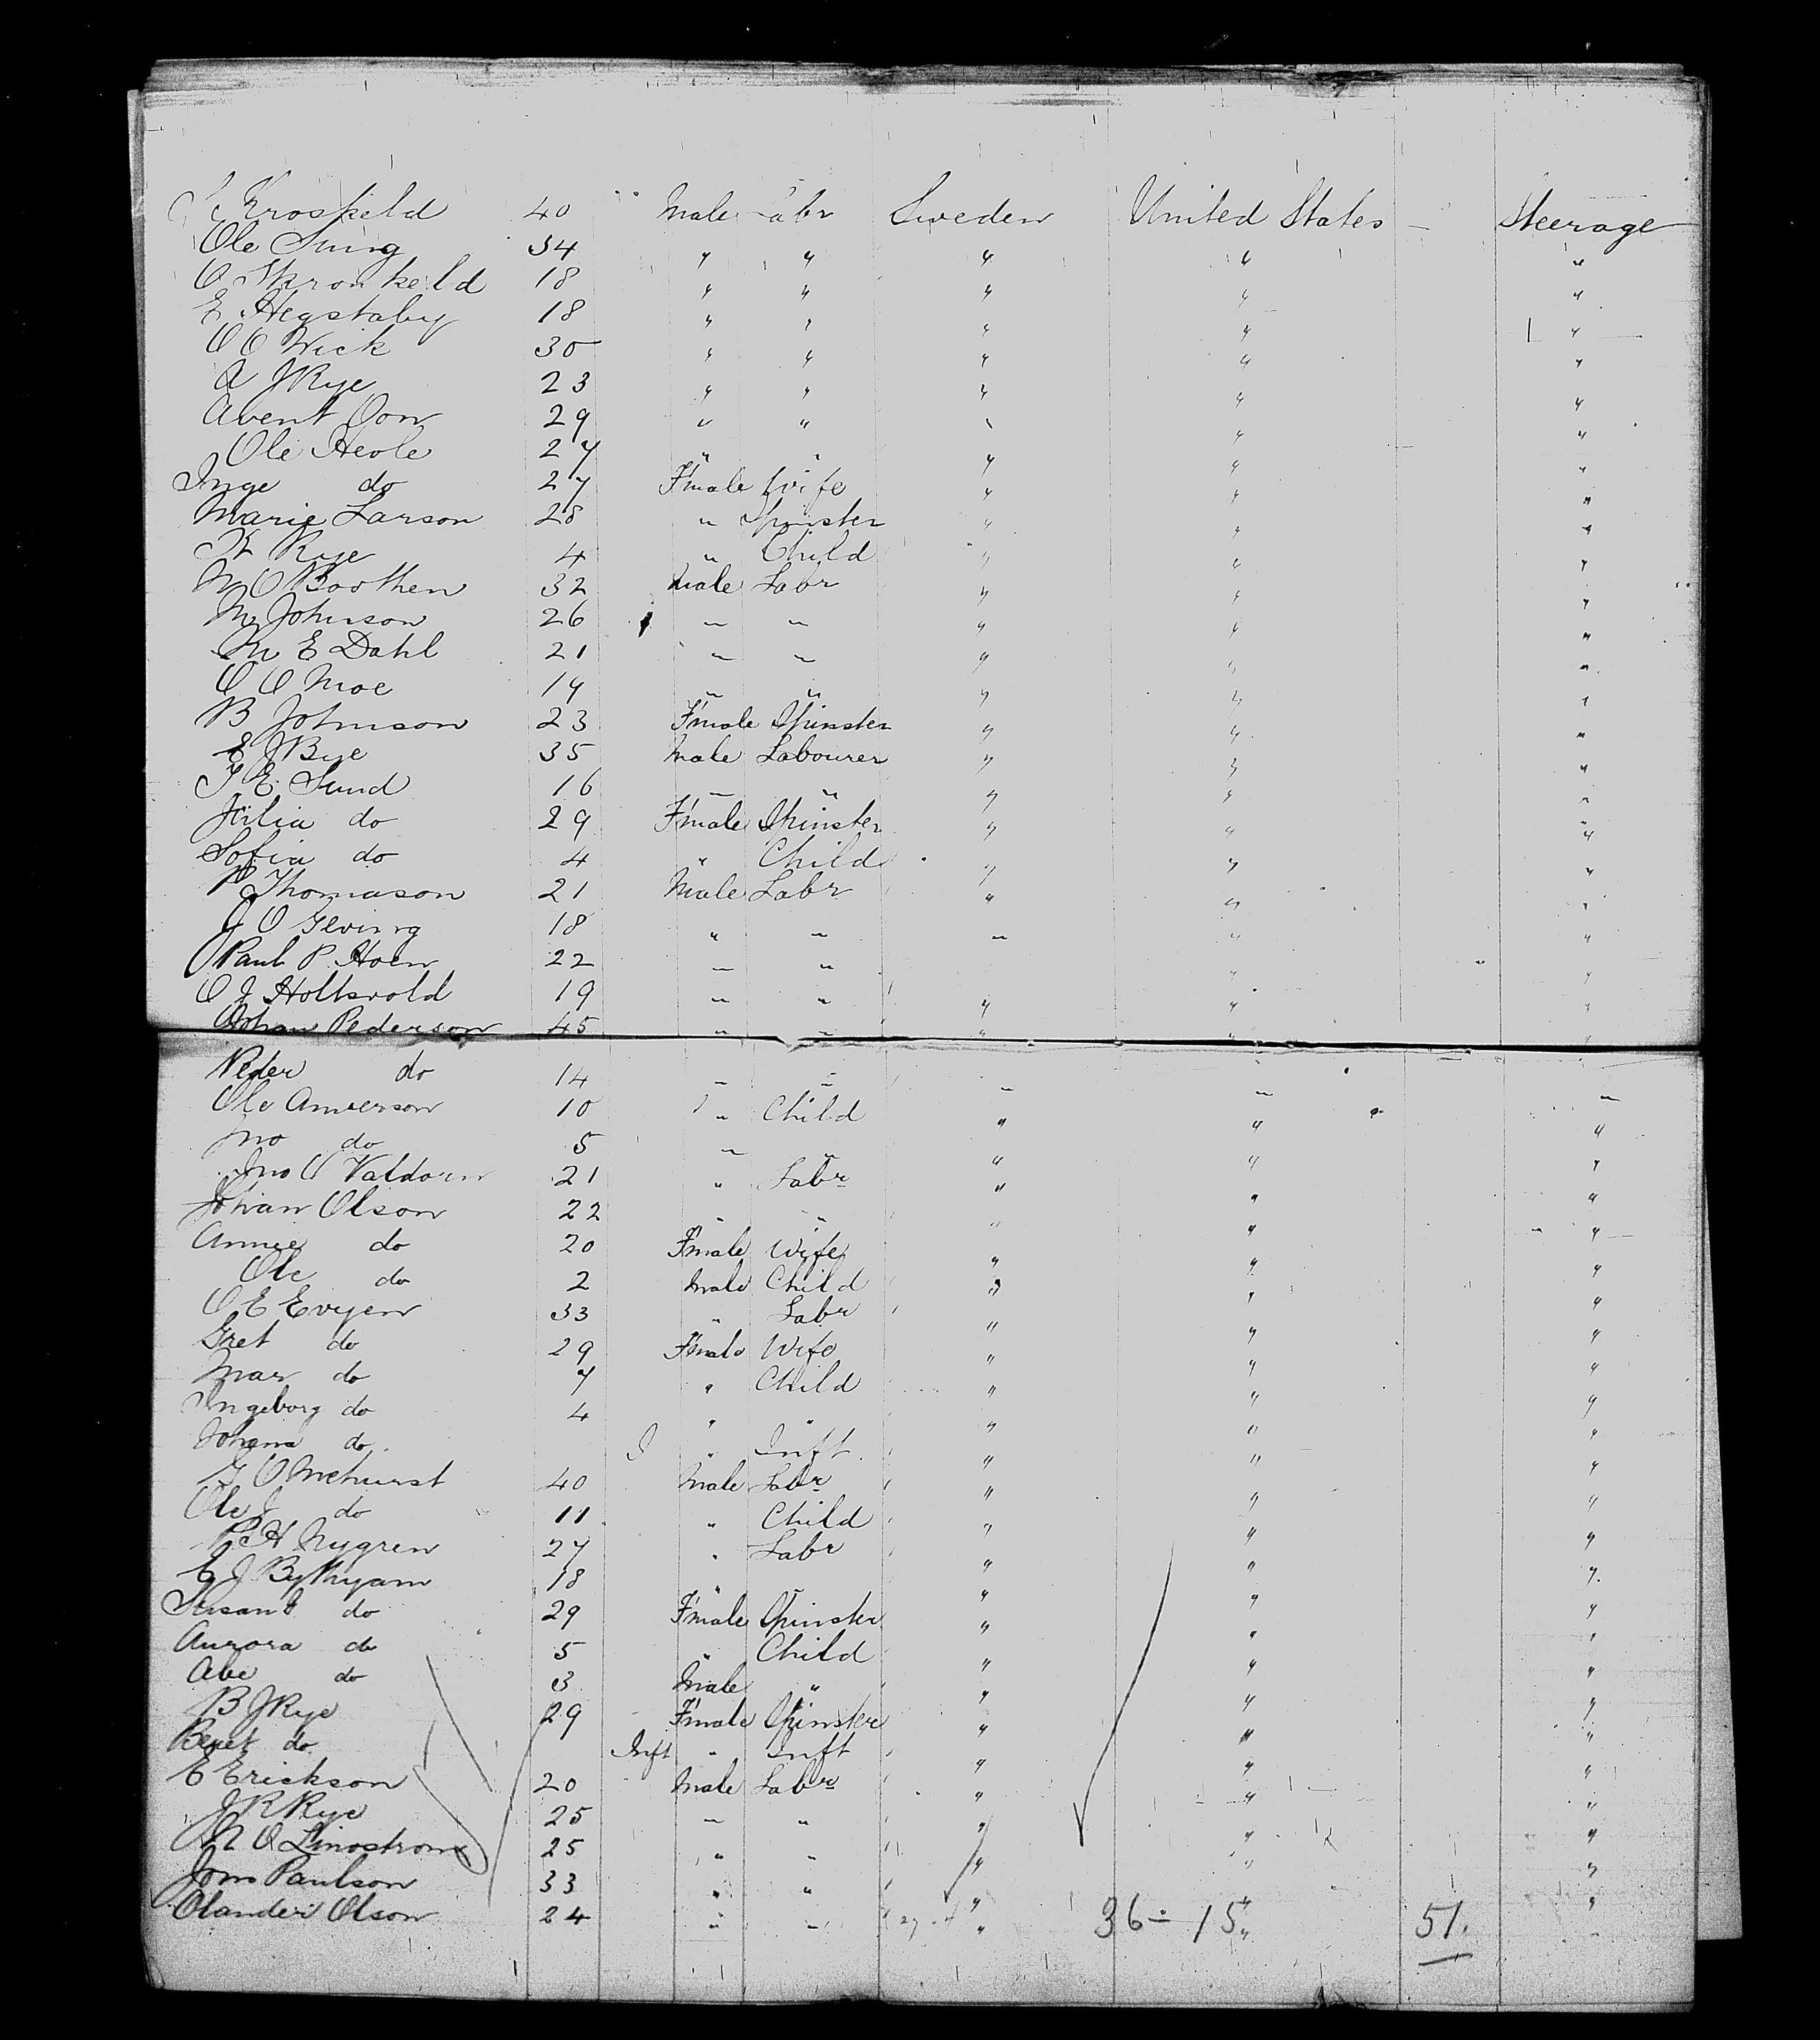 Kroskeld 40 Male Labr Sweden United States Steerage
Ole Suing 34 " " " " "
O Skronkeld 18 " " " " "
E Hegstaby 18 " " " " "
O O Wick 30 " " " " "
A J Rye 23 " " " " "
Avent Oon 29 " " " " "
Ole Heole 27 " " " " "
Inge do 27 Fmale Wife " " "
Marie Larson 28 " Spinster " " "
K Rye 4 " Child " " "
M O Boothen 32 Male Labr " " "
M Johnson 26 " " " " "
M E Dahl 21 " " " " "
O O Moe 19 " " " " "
B Johnson 23 Fmale Spinster " " "
E J Bye 35 Male Labourer " " "
T E Sund 16 " " " " "
Julia do 29 Fmale Spinster " " "
Sofia do 4 " Child " " "
P Thomason 21 Male Labr " " "
J O Gleving 18 " " " " "
Paul P Hoen 22 " " " "
O J Holtsvold 19 " " " " "
Johan Pederson 45 " " " "
Peder do 14 " " " " "
Ole Amverson 10 " Child " " "
Jno do 5 " " " " "
Jno O Valdorn 21 " Labr " " "
Johan Olson 22 " " " " "
Annie do 20 Fmale Wife " " "
Ole do 2 Male Child " " "
O E Evyen 33 " Labr " " "
Gret do 29 Fmale Wife " " "
Mar do 7 " Child " " "
Ingeborg do 4 " " " " "
Johana do I " Inft " " "
J O Mehurst 40 Male Labr " " "
Ole J do 11 " Child " " "
P H Nygren 27 " Labr " " "
E J By 18 " " " " "
Susan do 29 Fmale Spinster " " "
Aurora do 5 " Child " " "
Abe do 3 Male " " " "
B J Rye 29 Fmale Spinster " " "
Beret do Inft " Inft " " "
E Erickson 20 Male Labr " " "
J R Rye 25 " " " " "
N O Linostrom 25 " " " " "
Jom Paulson 33 " " " " "
Olander Olson 24 " " " " "
36 - 15 51.